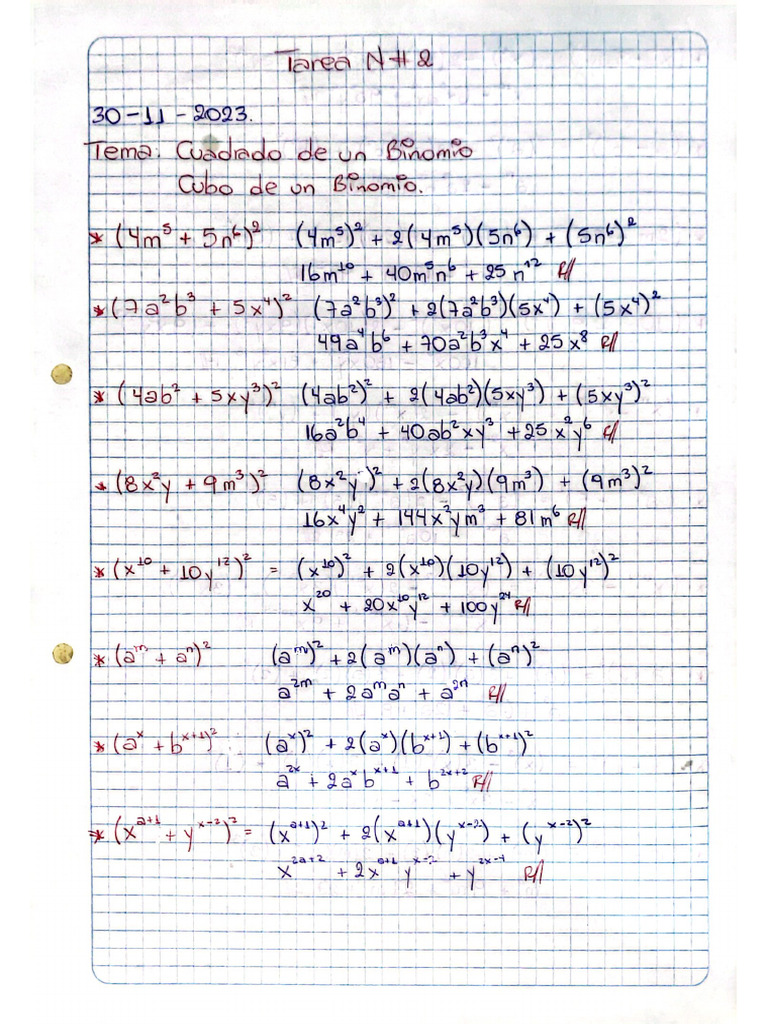 Tarea N# 2
30-11-2023.
Tema: Cuadrado de un Binomio
Cubo de un Binomio.
* (4m⁵ + 5n⁶)² (4m⁵)² + 2(4m⁵)(5n⁶) + (5n⁶)²
16m¹⁰ + 40m⁵n⁶ + 25n¹² R//
* (7a²b³ + 5x⁴)² (7a²b³)² + 2(7a²b³)(5x⁴) + (5x⁴)²
49a⁴b⁶ + 70a²b³x⁴ + 25x⁸ R//
* (4ab² + 5xy³)² (4ab²)² + 2(4ab²)(5xy³) + (5xy³)²
16a²b⁴ + 40ab²xy³ + 25x²y⁶ R//
* (8x²y + 9m³)² (8x²y)² + 2(8x²y)(9m³) + (9m³)²
16x⁴y² + 144x²ym³ + 81m⁶ R//
* (x¹⁰ + 10y¹²)² = (x¹⁰)² + 2(x¹⁰)(10y¹²) + (10y¹²)²
x²⁰ + 20x¹⁰y¹² + 100y²⁴ R//
* (aᵐ + aⁿ)² (aᵐ)² + 2(aᵐ)(aⁿ) + (aⁿ)²
a²ᵐ + 2aᵐaⁿ + a²ⁿ R//
* (aˣ + bˣ⁺¹)² (aˣ)² + 2(aˣ)(bˣ⁺¹) + (bˣ⁺¹)²
a²ˣ + 2aˣbˣ⁺¹ + b²ˣ⁺² R//
* (xᵃ⁺¹ + yˣ⁻²)² = (xᵃ⁺¹)² + 2(xᵃ⁺¹)(yˣ⁻²) + (yˣ⁻²)²
x²ᵃ⁺² + 2xᵃ⁺¹yˣ⁻² + y²ˣ⁻⁴ R//